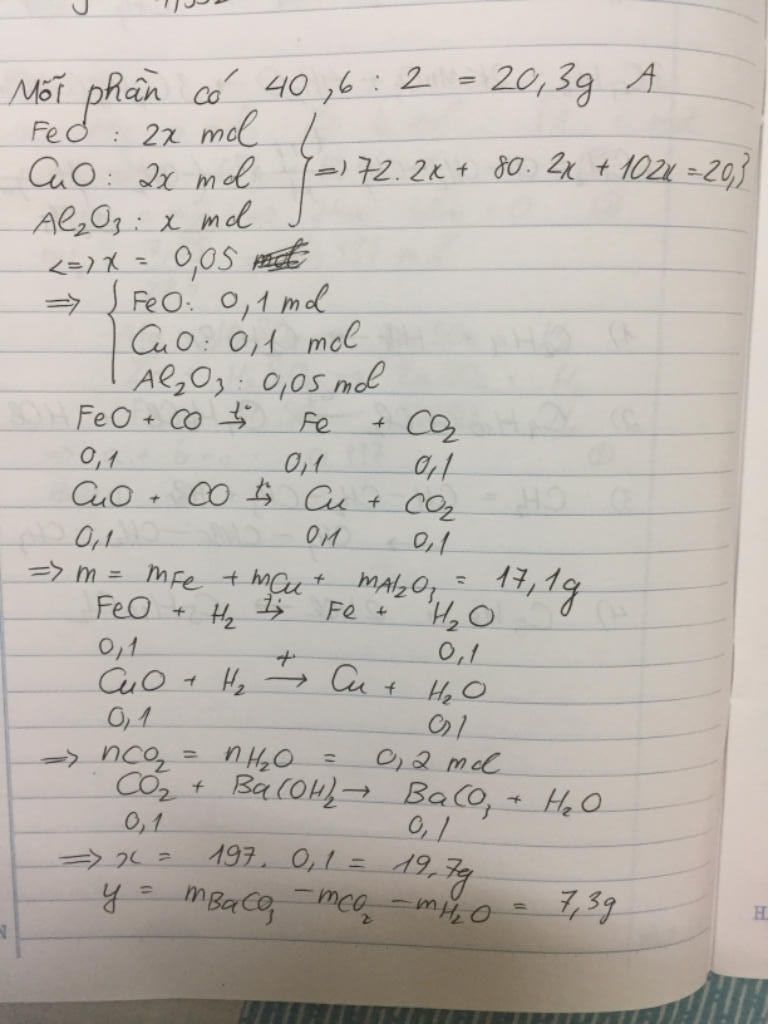 Mỗi phần có 40,6 : 2 = 20,3g A
FeO : 2x mol
CuO : 2x mol
Al₂O₃ : x mol
=) 72. 2x + 80. 2x + 102x = 20,3
<=> x = 0,05
=> FeO: 0,1 mol
CuO: 0,1 mol
Al₂O₃: 0,05 mol
FeO + CO t°→ Fe + CO₂
0,1 0,1 0,1
CuO + CO t°→ Cu + CO₂
0,1 0,1 0,1
=> m = mFe + mCu + mAl₂O₃ = 17,1g
FeO + H₂ t°→ Fe + H₂O
0,1 0,1
CuO + H₂ t→ Cu + H₂O
0,1 0,1
=> nCO₂ = nH₂O = 0,2 mol
CO₂ + Ba(OH)₂ → BaCO₃ + H₂O
0,1 0,1
=> x = 197. 0,1 = 19,7g
y = mBaCO₃ - mCO₂ - mH₂O = 7,3g